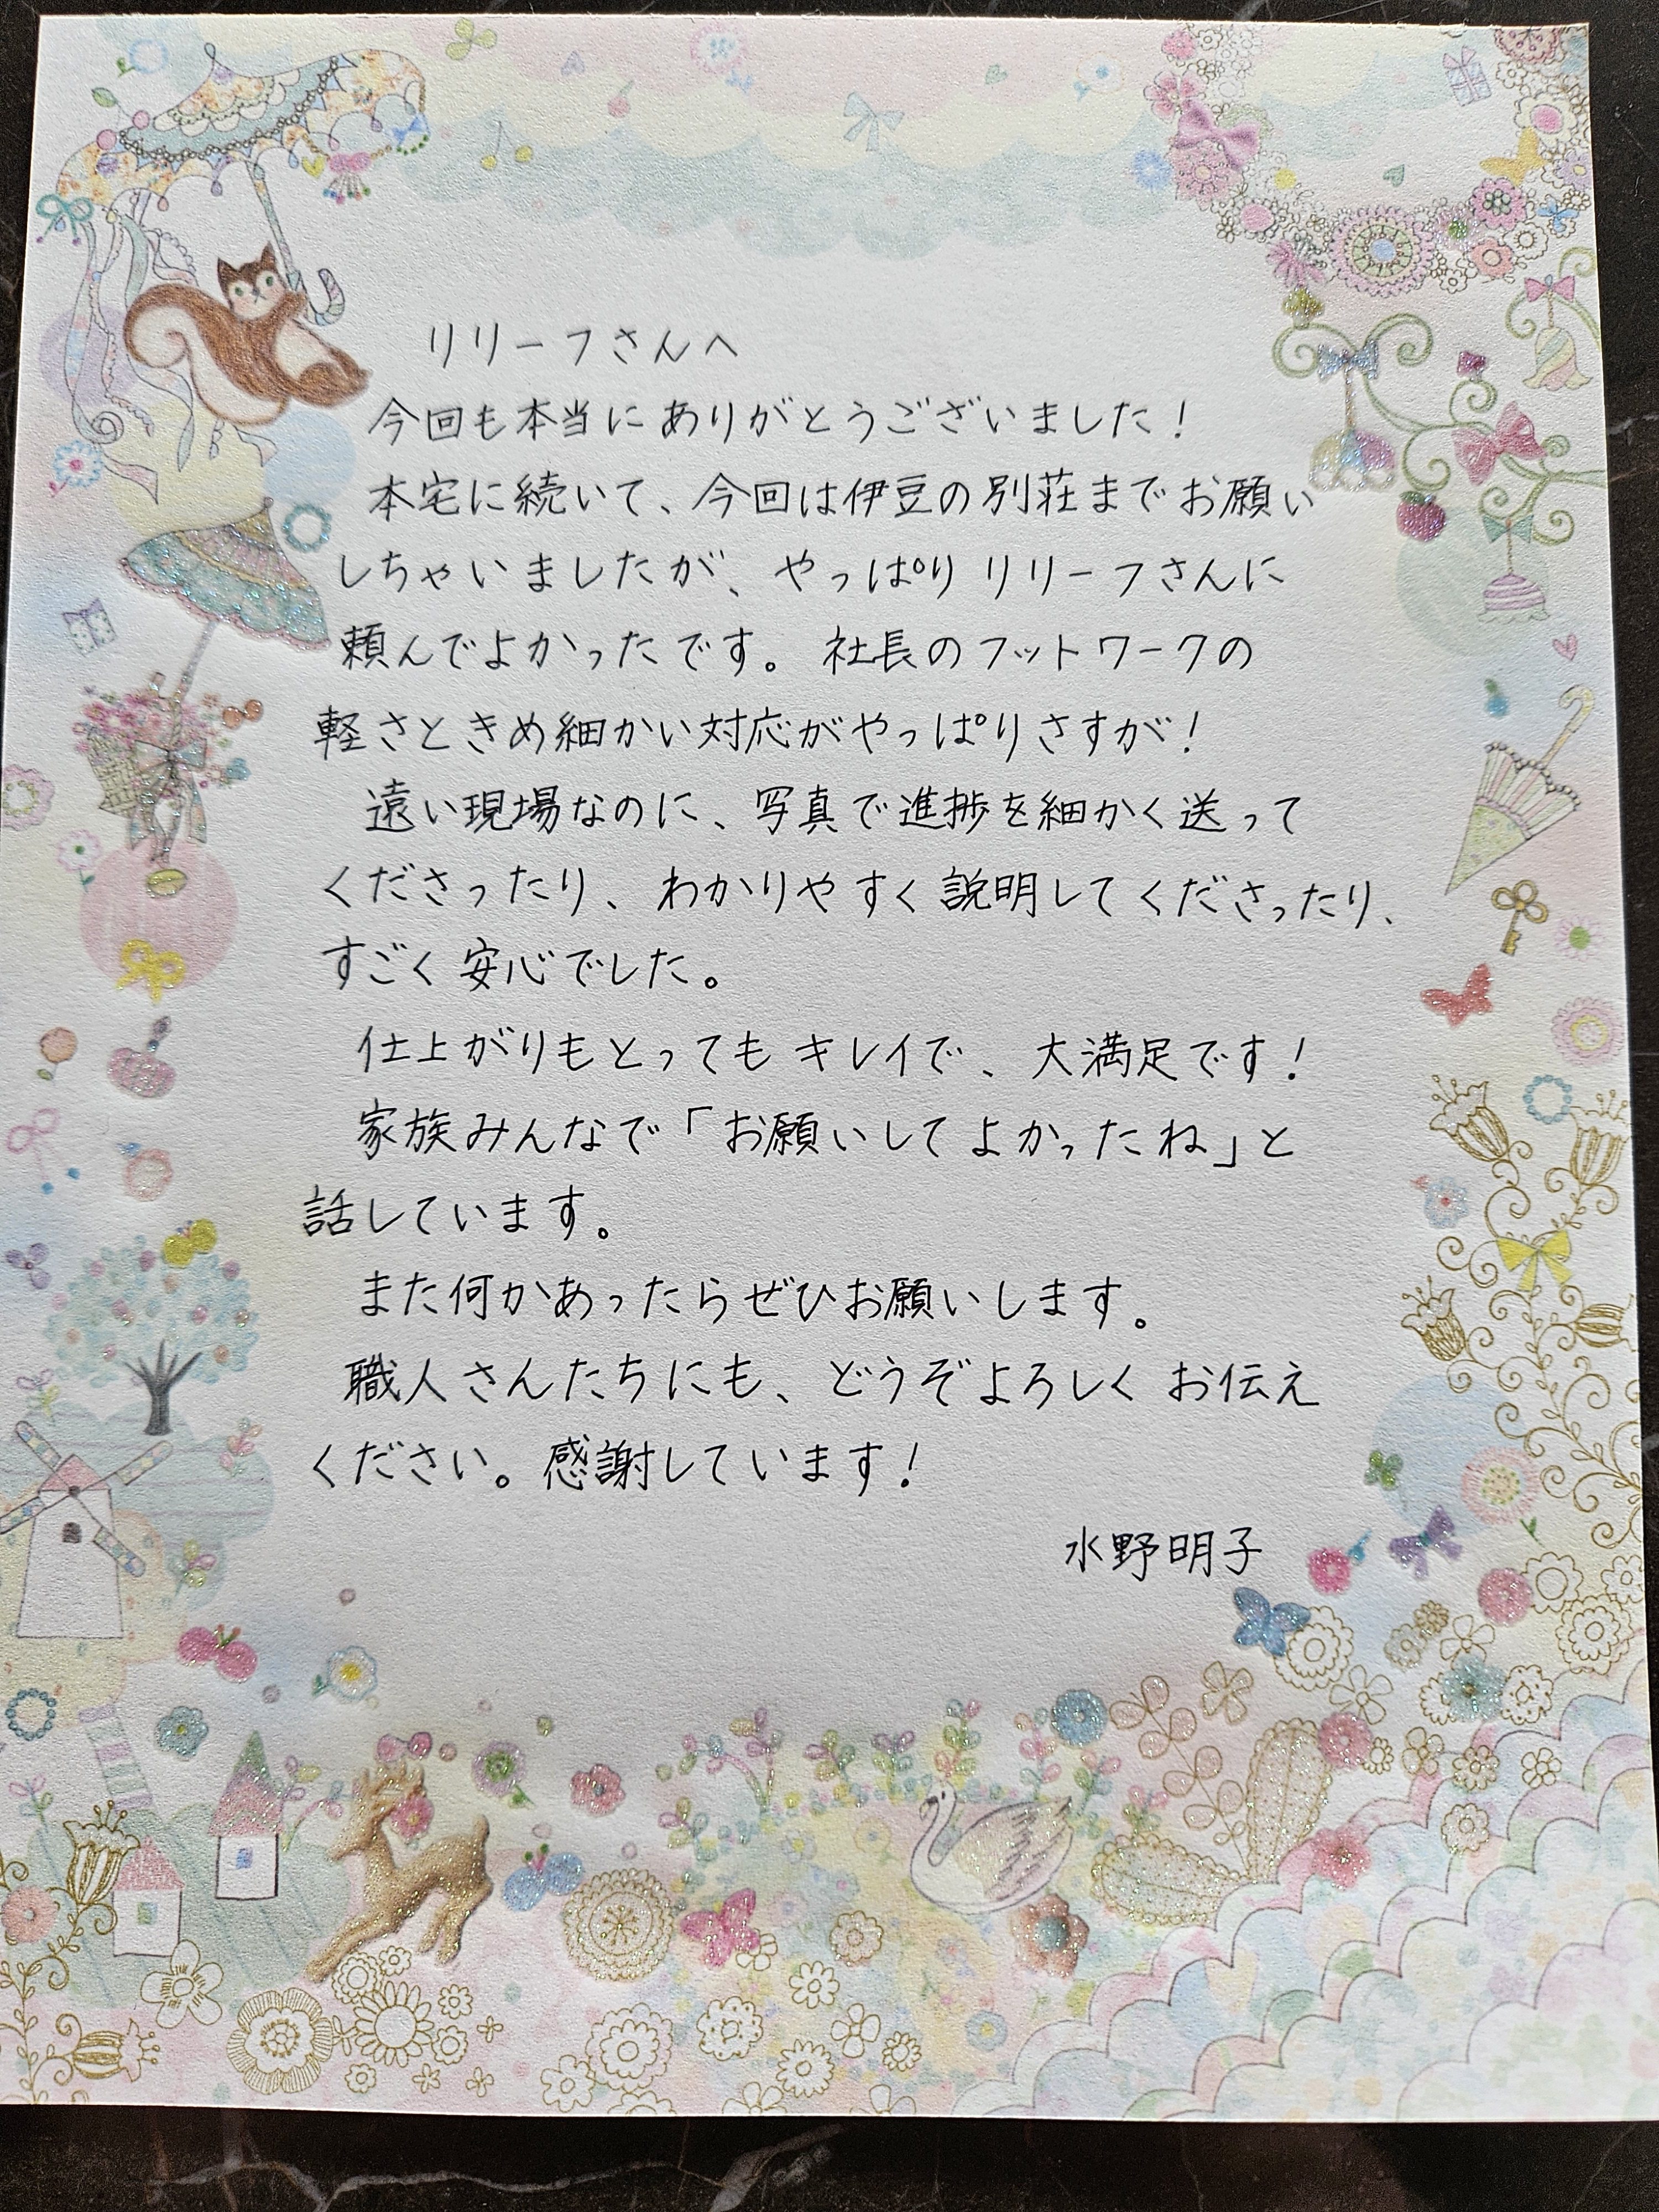 リリーフさんへ
今回も本当にありがとうございました！
本宅に続いて、今回は伊豆の別荘までお願い
しちゃいましたが、やっぱりリリーフさんに
頼んでよかったです。社長のフットワークの
軽さときめ細かい対応がやっぱりさすが！
遠い現場なのに、写真で進捗を細かく送って
くださったり、わかりやすく説明してくださったり、
すごく安心でした。
仕上がりもとってもキレイで、大満足です！
家族みんなで「お願いしてよかったね」と
話しています。
また何かあったらぜひお願いします。
職人さんたちにも、どうぞよろしくお伝え
ください。感謝しています！
水野明子